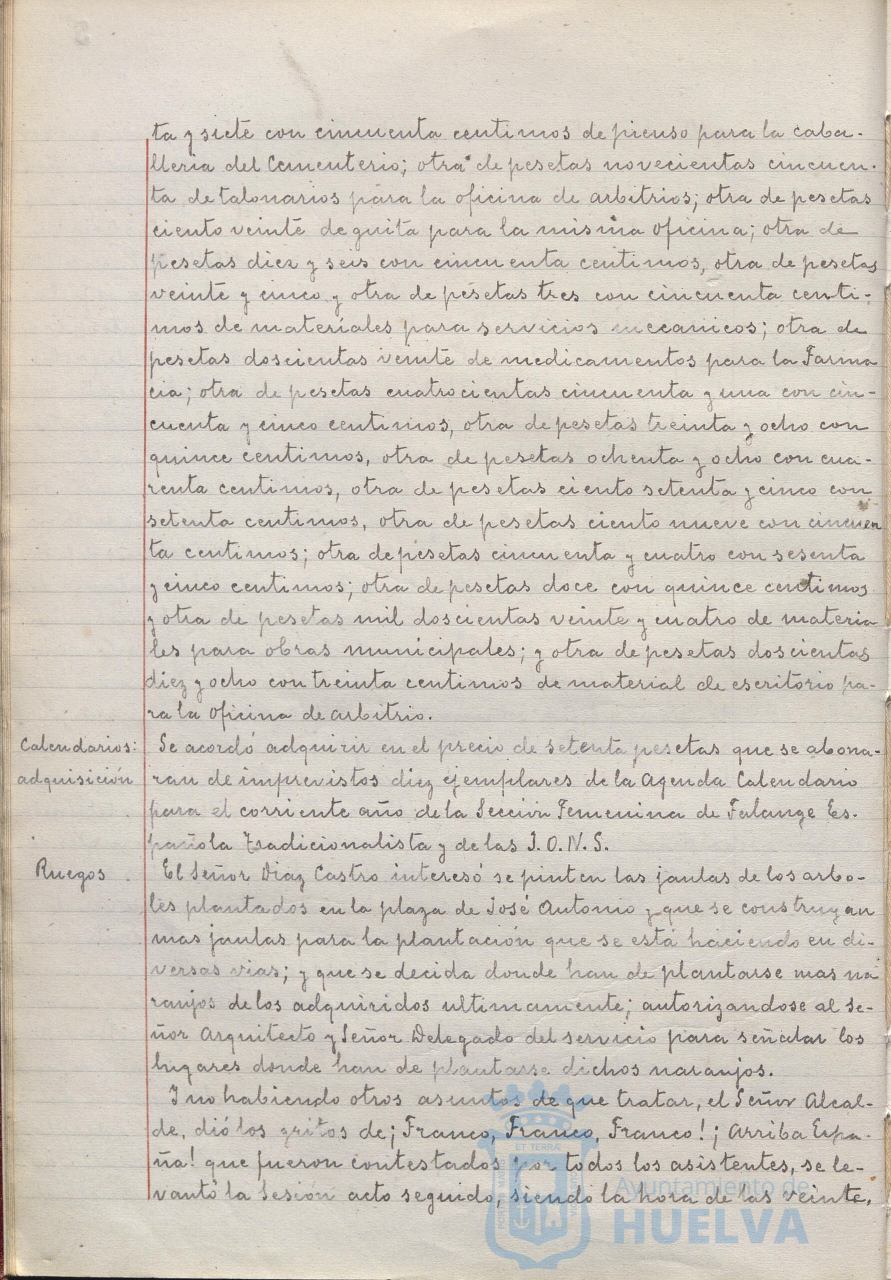 ta y siete con cincuenta centimos de pienso para la caba-
lleria del Cementerio; otra de pesetas novecientas cincuen-
ta de talonarios para la oficina de arbitrios; otra de pesetas
ciento veinte de guita para la misma oficina; otra de
pesetas diez y seis con cincuenta centimos, otra de pesetas
veinte y cinco y otra de pesetas tres con cincuenta centi-
mos de materiales para servicios mecanicos; otra de
pesetas doscientas veinte de medicamentos para la Farma
cia; otra de pesetas cuatrocientas cincuenta y una con cin-
cuenta y cinco centimos, otra de pesetas treinta y ocho con
quince centimos, otra de pesetas ochenta y ocho con cua-
renta centimos, otra de pesetas ciento setenta y cinco con
setenta centimos, otra de pesetas ciento nueve con cincuen
ta centimos; otra de pesetas cincuenta y cuatro con sesenta
y cinco centimos; otra de pesetas doce con quince centimos
y otra de pesetas mil doscientas veinte y cuatro de materia
les para obras municipales; y otra de pesetas doscientas
diez y ocho con treinta centimos de material de escritorio pa-
ra la oficina de arbitrio.
Calendarios:
adquisición
Se acordó adquirir en el precio de setenta pesetas que se abona-
ran de imprevistos diez ejemplares de la Agenda Calendario
para el corriente año de la Sección Femenina de Falange Es-
pañola Tradicionalista y de las J.O.N.S.
Ruegos
El Señor Diaz Castro interesó se pinten las jaulas de los arbo-
les plantados en la plaza de José Antonio y que se construyan
mas jaulas para la plantación que se está haciendo en di-
versas vias; y que se decida donde han de plantarse mas na
ranjos de los adquiridos ultimamente; autorizandose al Se-
ñor Arquitecto y Señor Delegado del servicio para señalar los
lugares donde han de plantarse dichos naranjos.
Y no habiendo otros asuntos de que tratar, el Señor Alcal-
de, dió los gritos de ¡Franco, Franco, Franco! ¡Arriba Espa-
ña! que fueron contestados por todos los asistentes, se le-
vantó la Sesión acto seguido, siendo la hora de las veinte,
Ayuntamiento de
HUELVA